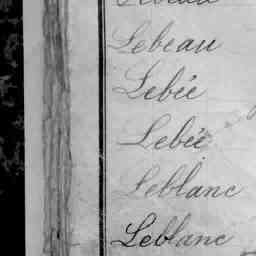 Lebeau
Lebeau
Lebée
Lebée
Leblanc
Leblanc